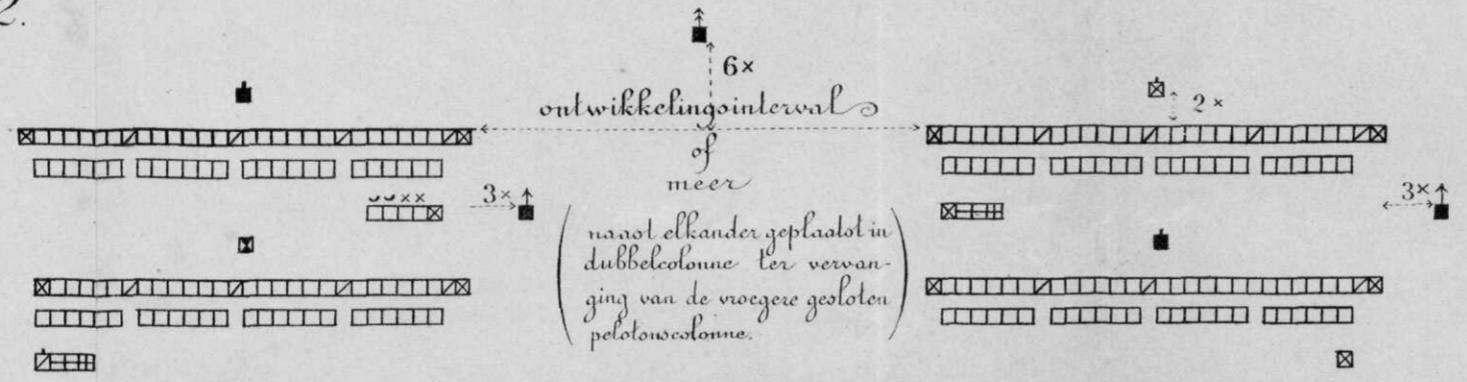 2.
6×
ontwikkelingsinterval
2 ×
of
meer
3×
3×
naast elkander geplaatst in
dubbelcolonne ter vervan-
ging van de vroegere gesloten
pelotonscolonne.